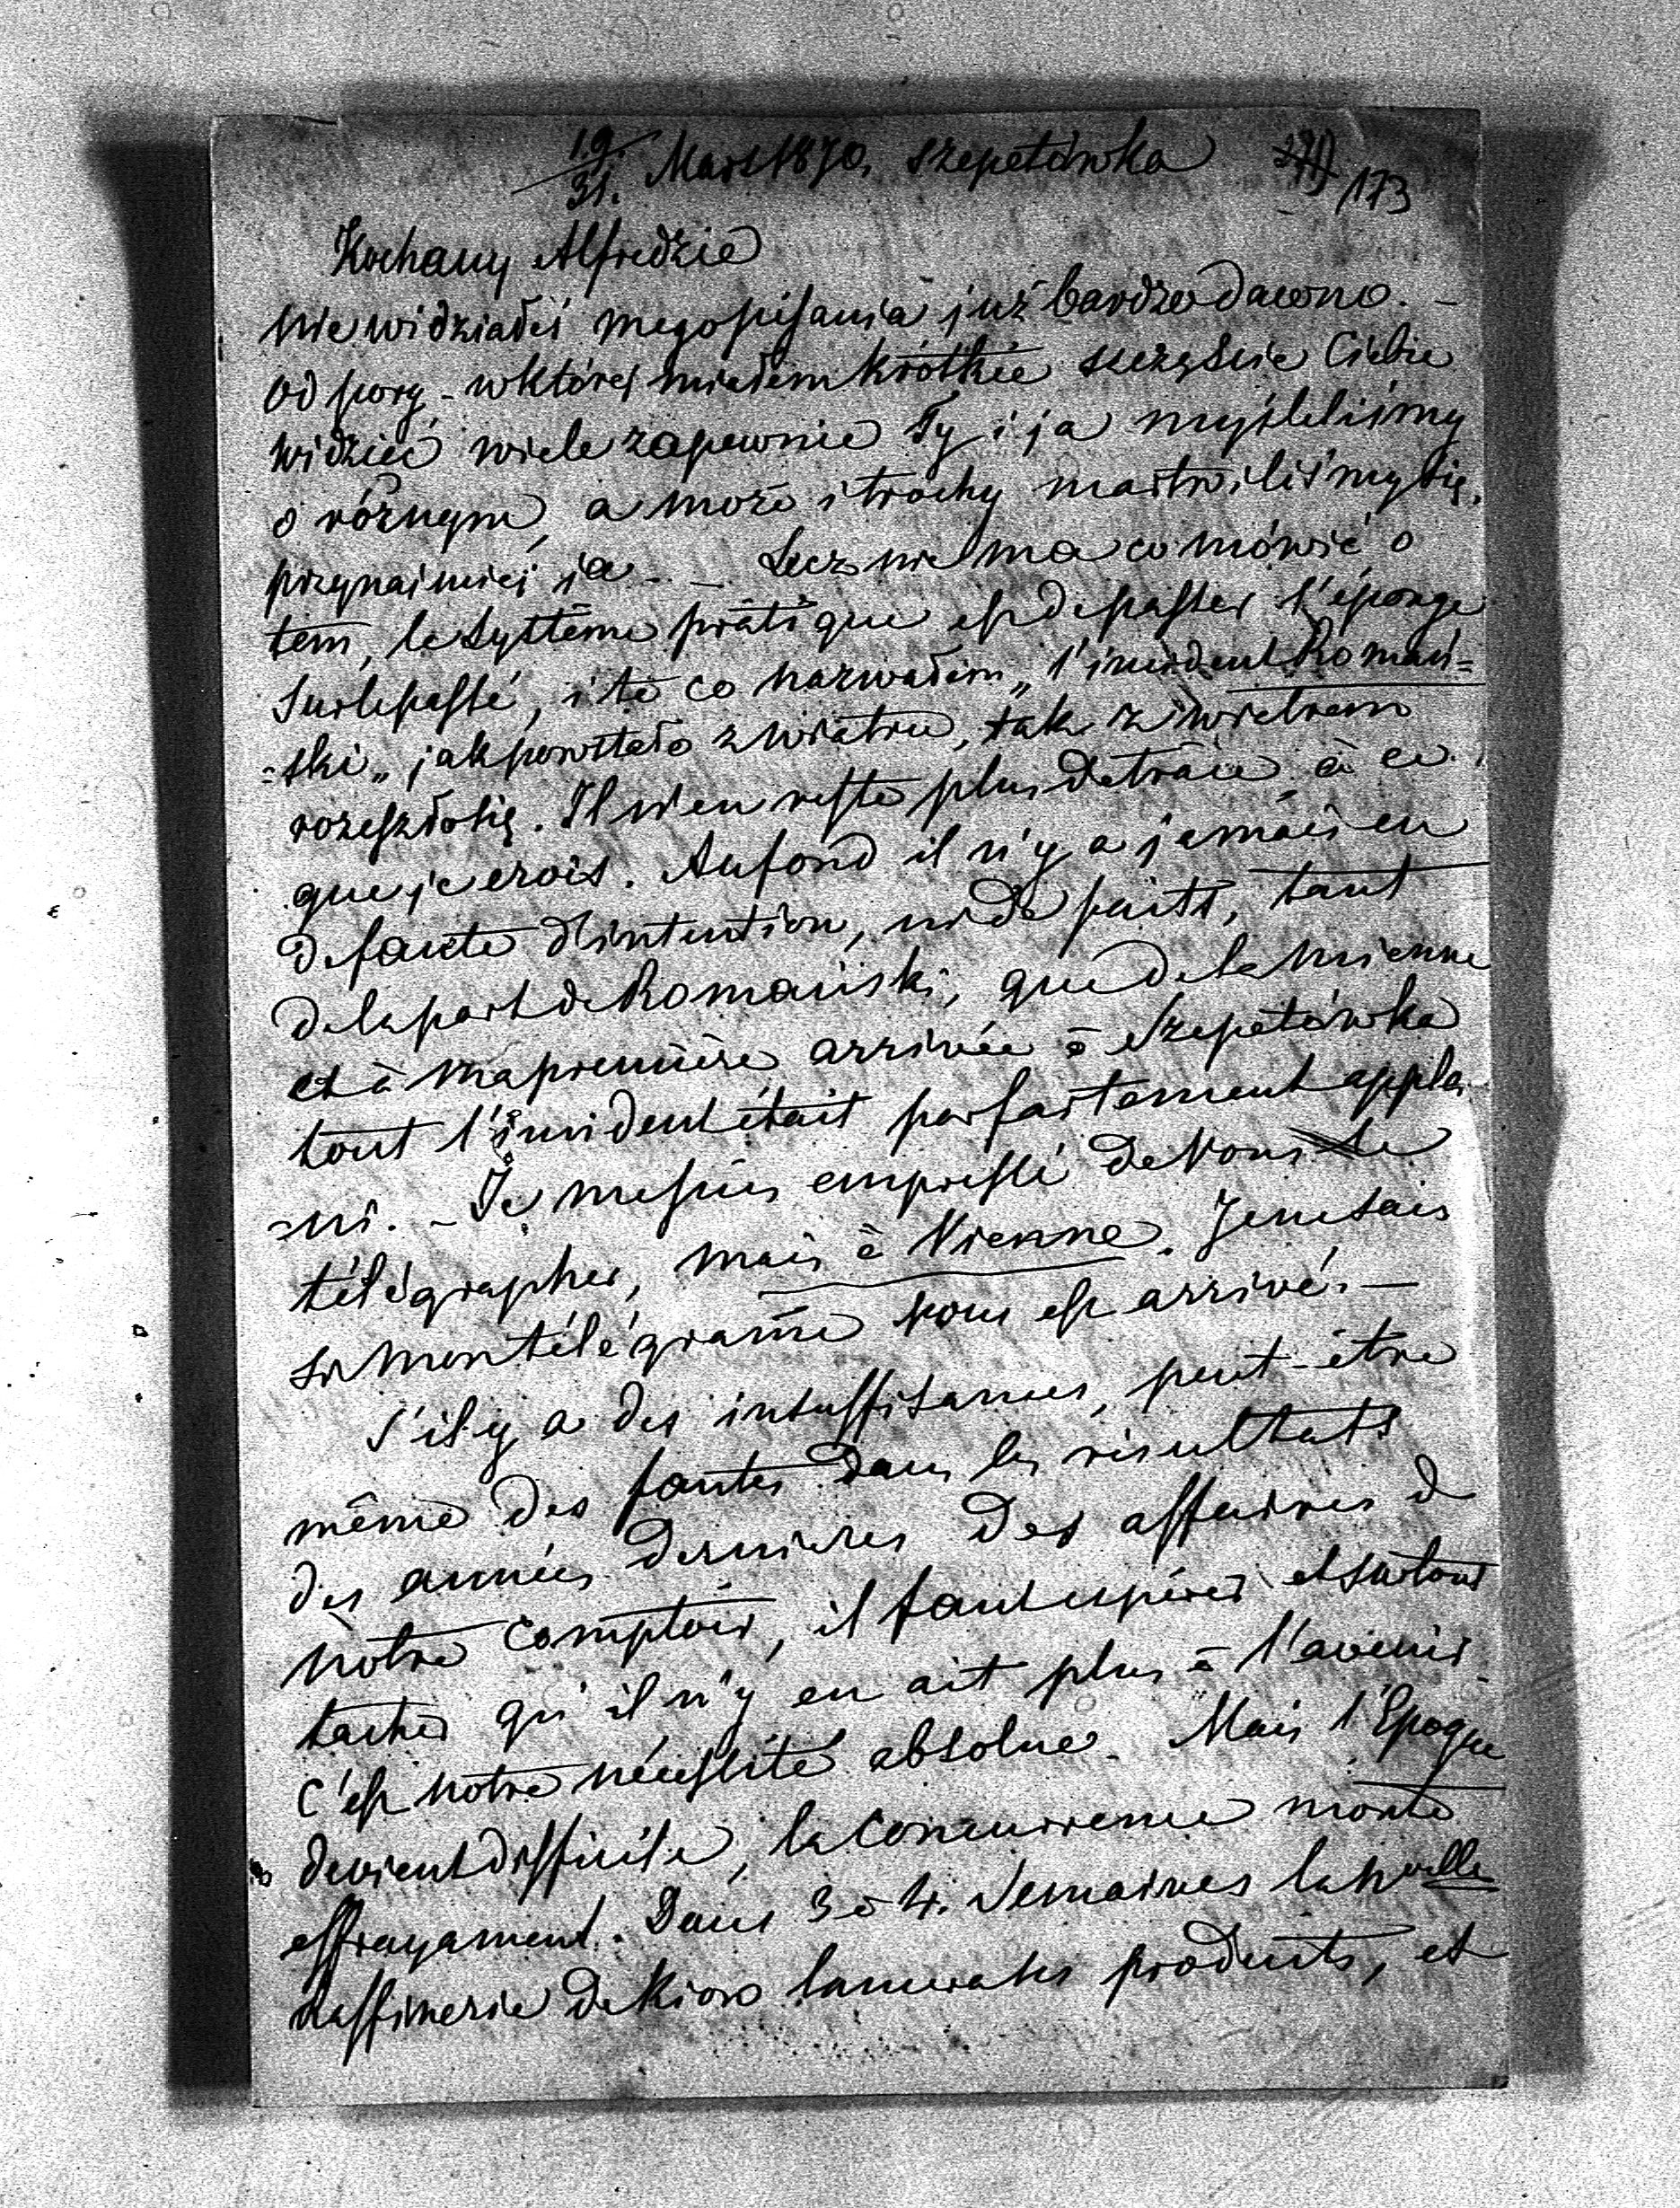 19./31. Mars 1870. Szepetówka 173
Kochany Alfredzie
Nie widziałeś mego pisania już bardzo dawno. –
Od pory – w której miałem krótkie szczęście Ciebie
widzieć wiele zapewnie Ty i ja myśleliśmy
o różnym, a może i trochy martwiliśmy się,
przynajmniej ja. – Lecz nie ma co mówić o
tem, le système prâtique est de passer l'éponge
sur le passé, i to co nazwałem „l'incident Romań=
=ski„ jak powstało z wiatru, tak z wiatrem
rozeszło się. Il n'en reste plus de trâce à ce
que je crois. Au fond il n'y a jamais eu
de faute d'intention, ni de faits, tant
de la part de Romański, que de la mienne
et à ma première arrivée à Szepetówka
tout l'incident était parfaitement appla
=ni. – Je me suis empressé de vous le
télégrapher, mais à Vienne. Je ne sais
si mon télégrame vous est arrivé. –
S'il y a des insuffisances, peut-être
même des fautes dans les résultats
des années dernières des affaires d
notre comptoir, il faut espérer et surtout
tacher qu'il n'y en ait plus à l'avenir
C'est notre nécessité absolue. Mais l'Epoque
devient difficile, la concurrence monte
effrayament. Dans 3 à 4. Semaines la nvelle
Raffinerie de Kiow lancera ses produits, et